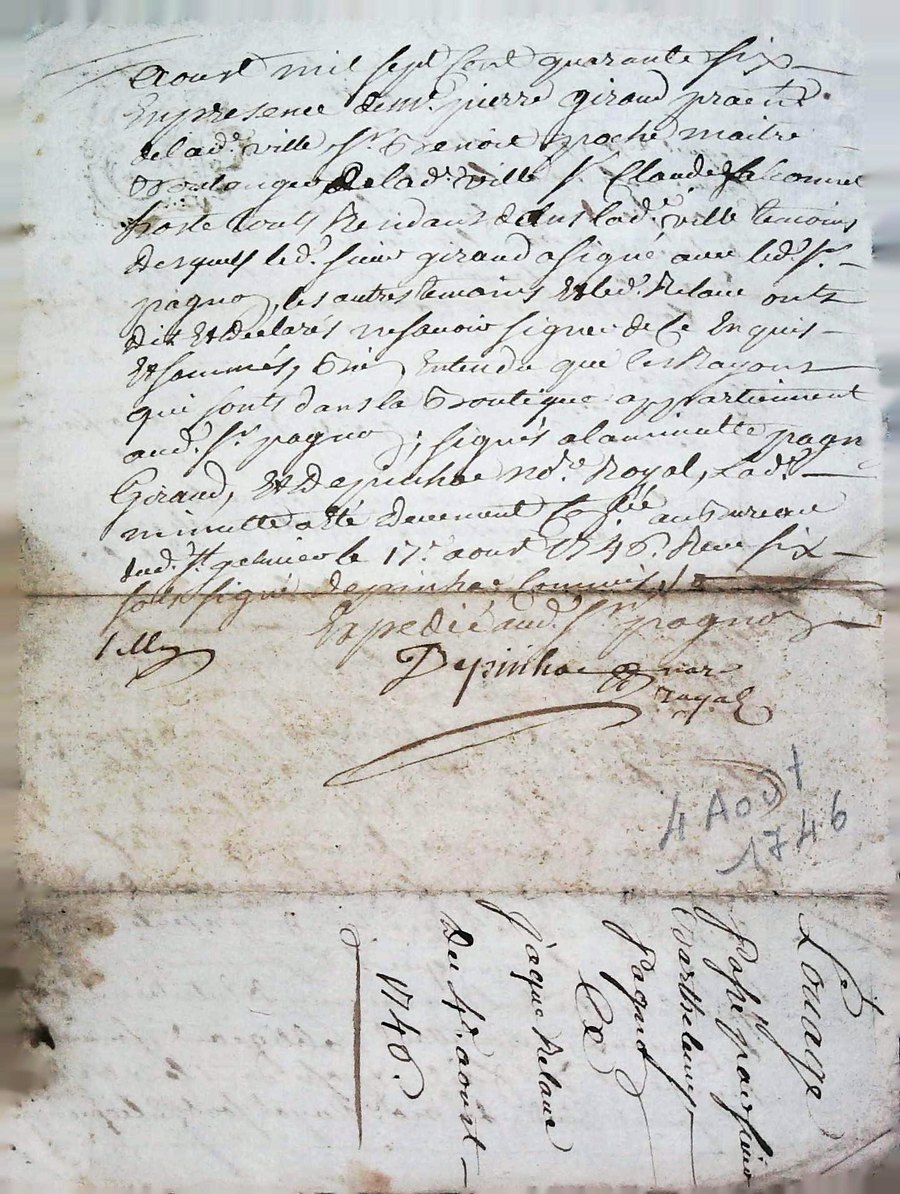 aoust mil sept cent quarante six
En presence de mr. pierre giraud praen.
delad.e ville Sr. Benoit poche maitre
Boulenger de lad. ville Sr. Claude falconnet
hoste touts Residants dans lad.e ville temoins
desquels led. sieur giraud a signé avec led. Sr.
pagnoz, les autres temoins Et led. Relave ont
dit Et declarés ne savoir signer de ce Enquis
Et sommés, Bien Entendu que les Rayons
qui sonts dans la Boutique appartiennent
aud. Sr. pagnoz, signés a la minutte pagn
Giraud, Et Depinhac no.e Royal, Lad.
minutte a été deuement au Bureau
dud. St. le 17.e aout 1746. Reçu six
sols signé depinhac Commis
Expedié aud. Sr. pagnoz
Depinhac no.re
royal
4 Août
1746
Louage
passé par sieur
Barthelemy
Pagnoz
&
Jaque Relave
Du 4.e aoust
1746.